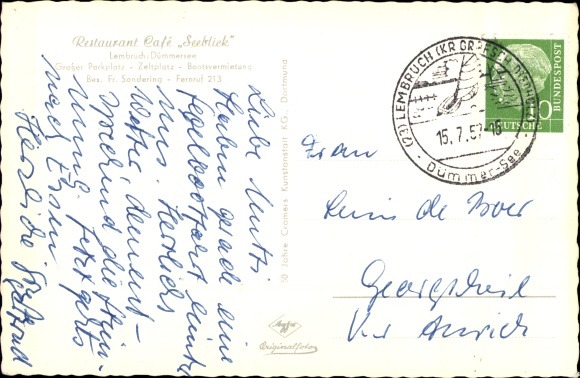 Restaurant Café „Seeblick"
Lembruch/Dümmersee
Großer Parkplatz - Zeltplatz - Bootsvermietung
Bes. Fr. Sandering - Fernruf 213
Liebe Mutti.
Haben gerade eine
Segelbootfahrt hinter
uns. Herrliches
Wetter dement-
sprechend die Stim-
mung. Jetzt geht's
nach Essen.
Herzliche Grüße
50 Jahre Cramers Kunstanstalt KG., Dortmund
Agfa
Originalfoto
(23) LEMBRUCH (KR GRFSCH DIEPHOLZ)
15.7.57-16
Dümmer-See
DEUTSCHE BUNDESPOST
10
Frau
de Boer
Georgsheil
Kr. Aurich